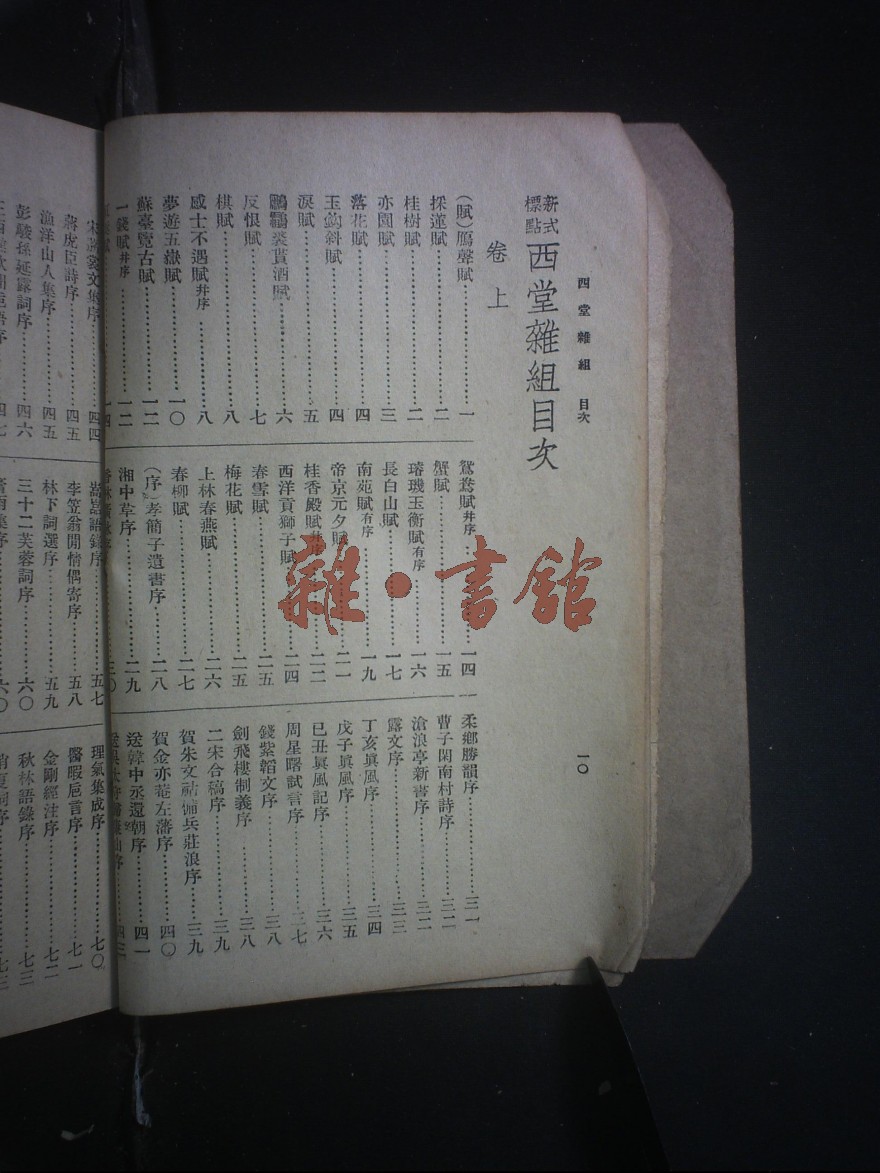 四堂雜組 目次
一〇
新式標點 西堂雜組目次
卷上
(賦)鴈聲賦…………一
採蓮賦…………二
桂樹賦…………二
亦園賦…………三
落花賦…………四
玉鈎斜賦…………四
淚賦…………五
鷫鸘裘貰酒賦…………六
反恨賦…………七
棋賦…………八
感士不遇賦并序…………八
夢遊五嶽賦…………一〇
蘇臺覽古賦…………一二
一錢賦并序…………一二
鴛鴦賦并序…………一四
蟹賦…………一五
璿璣玉衡賦有序…………一六
長白山賦…………一七
南苑賦有序…………一九
帝京元夕賦…………二一
桂香殿賦并序…………二二
西洋貢獅子賦…………二四
春雪賦…………二五
梅花賦…………二五
上林春燕賦…………二六
春柳賦…………二七
(序)孝簡子遺書序…………二八
湘中草序…………二九
柔鄉勝韻序…………三一
曹子閑南村詩序…………三二
滄浪亭新書序…………三二
露文序…………三三
丁亥眞風序…………三四
戊子眞風序…………三五
已丑眞風記序…………三六
周星曙試言序…………三七
錢紫韜文序…………三八
劍飛樓制義序…………三八
二宋合稿序…………三九
賀朱文祜備兵莊浪序…………三九
賀金亦菴左藩序…………四〇
送韓中丞還朝序…………四一
蔣虎臣詩序…………四五
漁洋山人集序…………四五
彭駿孫延露詞序…………四六
嵩語錄序…………五七
李笠翁閒情偶寄序…………五八
林下詞選序…………五九
三十二芙蓉詞序…………六〇
理氣集成序…………七〇
醫暇巵言序…………七一
金剛經注序…………七二
秋林語錄序…………七三
雜·書館